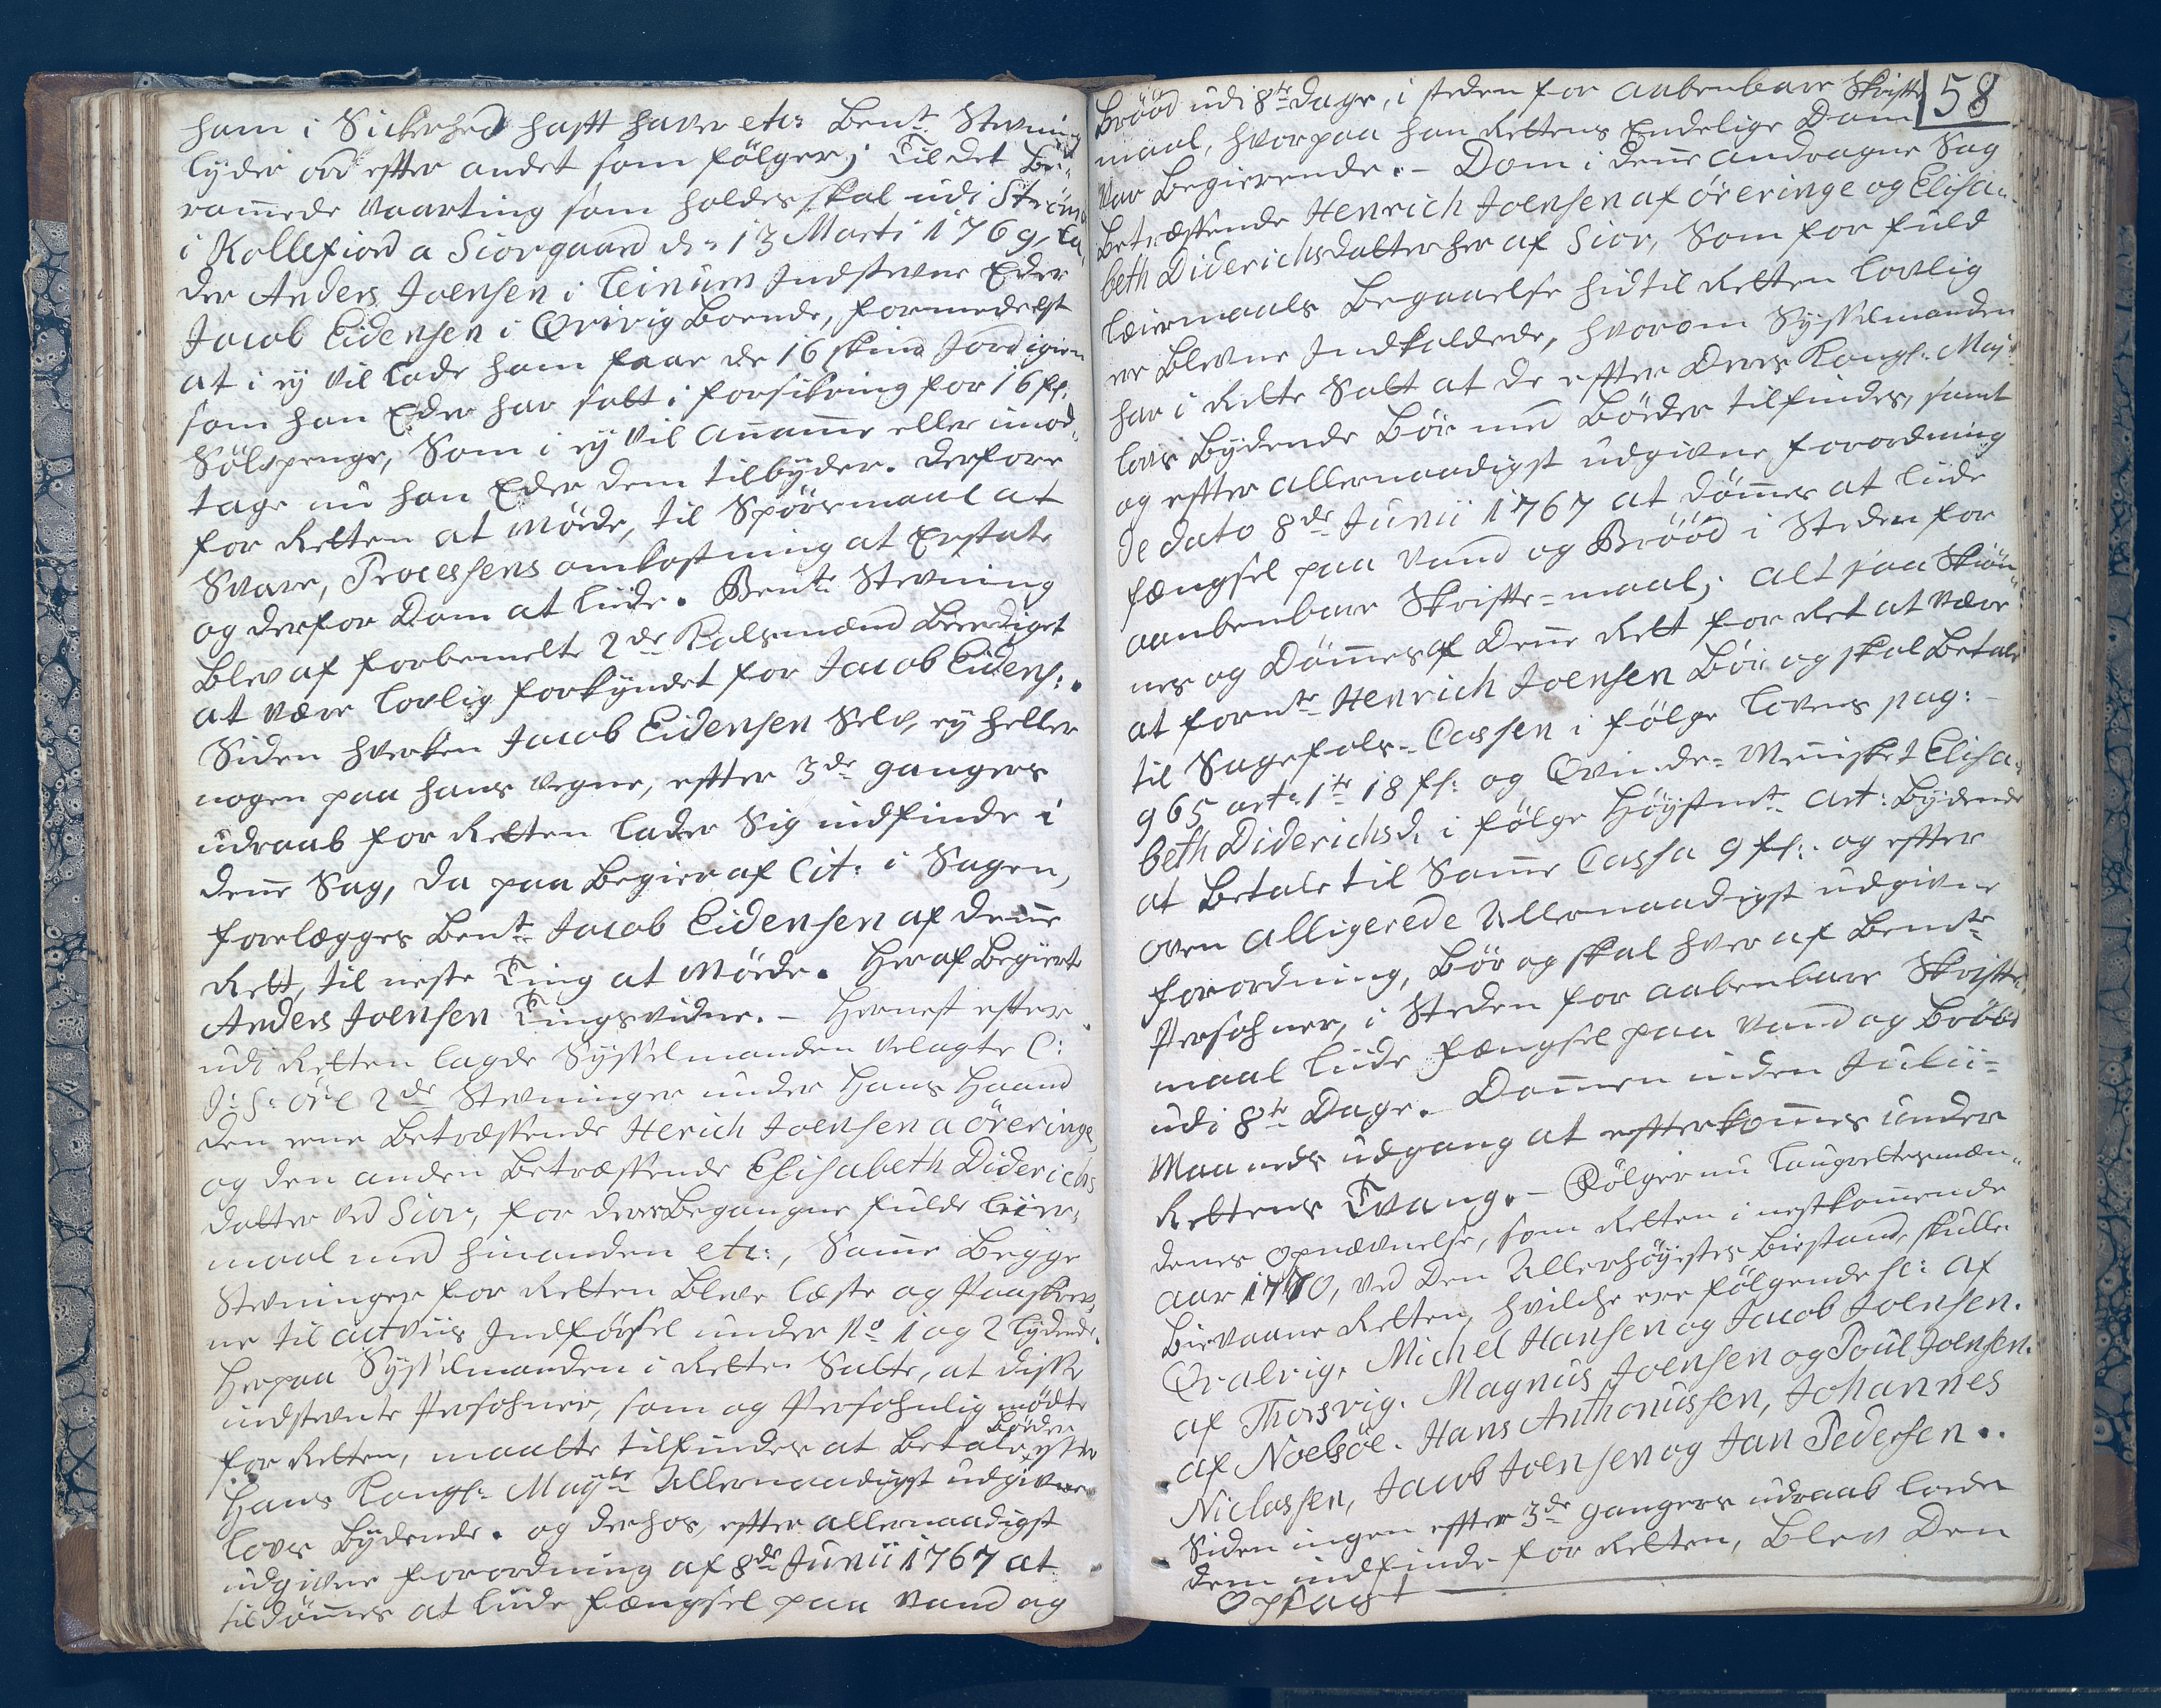 ham i Sickerhed hafft haver etc: Bemte Stevning
lyder ord effter andet som fölger; Til det be-
rammede Vaarting som holdes skal udi Strömö
i Kollefiord a Siorgaard d: 13 Marti 1769, la-
der Anders Joensen i Leinum Indstevne Eder
Jacob Eidensen i Qvivig Boende, formedelst
at i ey vil lade ham faae de 16 skind Jord igien
som han Eder har satt i forsikring for 16 ß:
Sölvpenge, Som i ey vil anamme eller imod-
tage nu han Eder dem tilbyder. Derfore
for Retten at möde, til Spörsmaal at
Svare, Processens omkostning at Erstate
og derfor Dom at liide. Bemte Stevning
Blev af forbemelte 2de Kalsmænd Beediget
at være lovlig forkyndet for Jacob Eidens:.
Siden hverken Jacob Eidensen Selv, ey heller
nogen paa hans vegne, effter 3de gangers
udraab for Retten lader Sig indfinde i
denne Sag, da paa Begier af Cit: i Sagen,
forelægges Bemte Jacob Eidensen af denne
Rett, til neste Ting at Möde. Heraf Begierte
Anders Joensen Tingsvidne. - Hernest effter
udi Retten lagde Sysselmanden Velagte C:
J: S: Öre 2de Stevninger under Hans Haand
den eene Betreffende Herich Joensen a öreringe,
og den anden Betreffende Elisabeth Diderichs
datter ved Sior, for deres Begangne fulde leier-
maal med hinanden etc:, Samme Begge
Stevninger for Retten Bleve læste og Paaskrev-
ne til actviis Indförsel under No 1 og 2 lydende.
Herpaa Sysselmanden i Rette Satte, at disse
indstevnte Persohner, som og Persohnlig mödte
for Retten, maatte tilfindes at Betale Böder effter
Hans Kongl: Mayts Allernaadigst udgivne
Lovs Bydende. og derhos, effter allernaadigst
udgivne forordning af 8de Junii 1767 at
tildömmes at liide fængsel paa Vand og
58
Brööd udi 8te dage, i steden for aabenbare Skriffte
maal, hvorpaa han Rettens Endelige Dom
var Begierende. - Dom i denne andragne Sag
Betreffende Henrich Joensen af öreringe og Elisa-
beth Diderichsdatter her af Sior, Som for fuld
Leiermaals Begaaelse hid til Retten lovlig
ere blevne Indkaldede, hvorom Sysselmanden
har i Rette Satt at de effter Deres Kongl. Mays
lovs Bydende Bör med Böder tilfindes, samt
og effter allernaadigst udgivne forordning
de dato 8de Junii 1767 at dömmes at liide
fængsel paa Vand og Brööd i Steden for
aanbenbare Skriffte=maal; alt saa Skiön-
nes og Dömmes af Denne Rett for Ret at være
at fornte Henrich Joensen Bör og skal Betale
til Sagefals=Cassen i fölge Lovens pag:
965 art: 1te 18 ß: og Qvinde=Mennisket Elisa-
beth Diderichsd: i fölge Höystmte art: Bydende
at Betale til Samme Cassa 9 ß: og effter
oven alligerede Allernaadigst udgivne
forordning, Bör og skal hver af Bemte
Persohner, i Steden for aabenbare Skriffte-
maal liide fængsel paa Vand og Brööd
udi 8te Dage. Dommen inden Julii=
Maaneds udgang at effterkommes under
Rettens Tvang. - Fölger nu Laugrettesmæn-
denes Opnævnelse, som Retten i nestkommende
aar 1770, ved Den Allerhöyestes Biestand, skulle
Bievaane Retten, hvilche ere fölgende sc: af
Qvalvig. Michel Hansen og Jacob Joensen.
af Thorsvig. Magnus Joensen og Poul Joensen.
af Noelsöe. Hans Anthonussen, Johannes
Niclassen, Jacob Joensen og Jan Pedersen..
Siden ingen effter 3de gangers udraab loed
dem indfinde for Retten, Blev Den
Opsagt